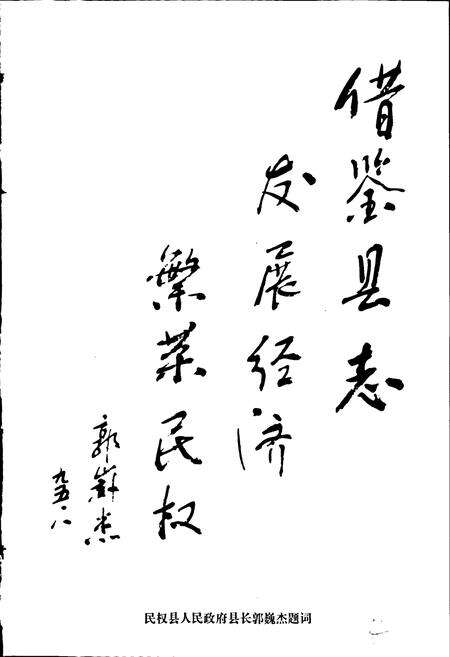 借鉴县志
发展经济
繁荣民权
郭巍杰
九五·八
民权县人民政府县长郭巍杰题词